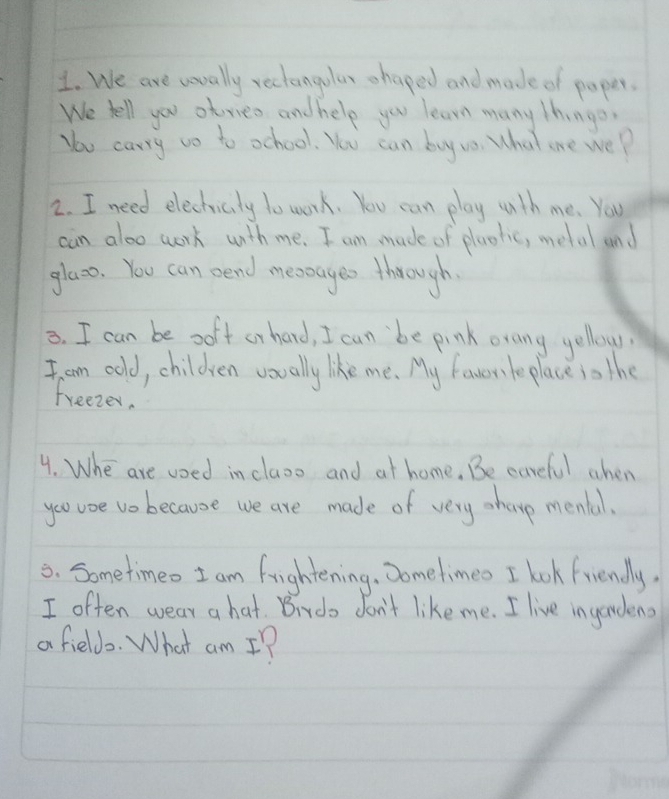 1. We are usually rectangular shaped and made of paper.
We tell you stories and help you learn many things.
You carry us to school. You can buy us. What are we?
2. I need electricity to work. You can play with me. You
can also work with me. I am made of plastic, metal and
glass. You can send messages through.
3. I can be soft or hard, I can be pink orang yellow.
I am cold, children usually like me. My favorite place is the
freezer.
4. Whe are used in class and at home. Be careful when
you use us because we are made of very sharp mental.
5. Sometimes I am frightening. Sometimes I look friendly.
I often wear a hat. Birds don't like me. I live in gardens
a fields. What am I?